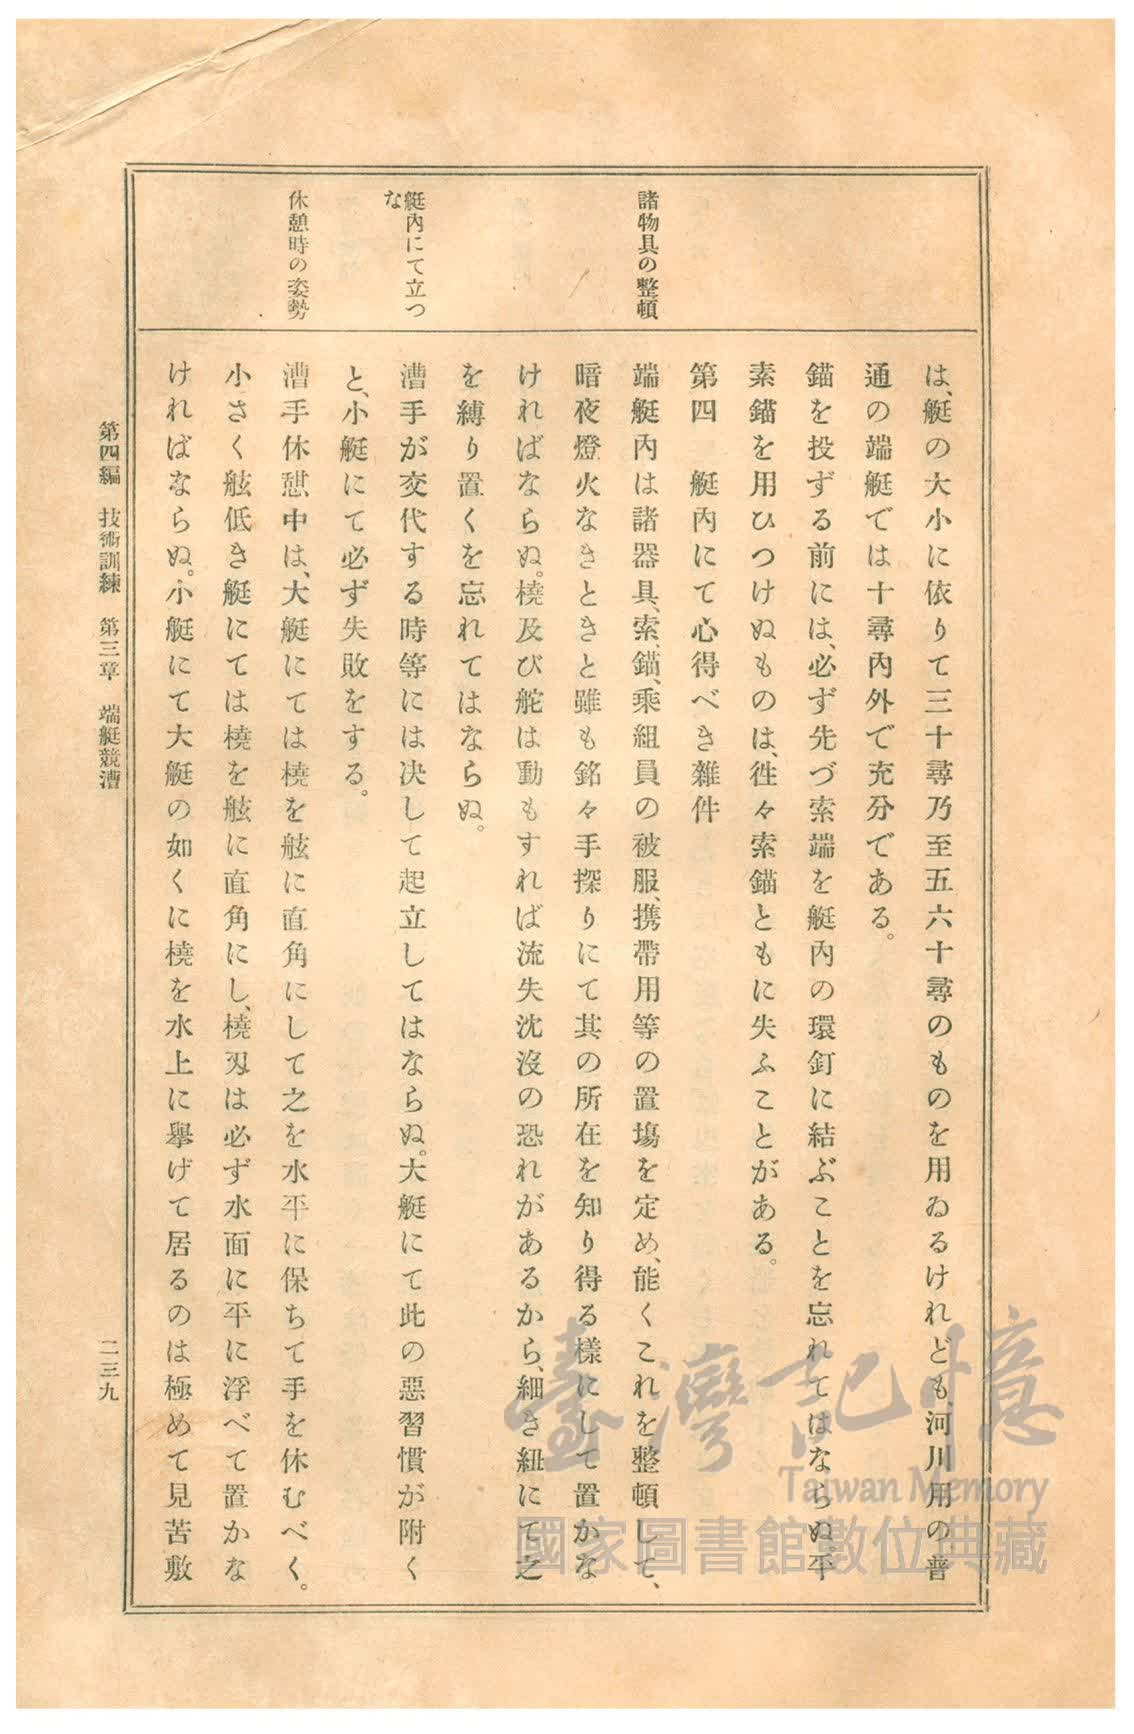 諸物具の整頓
艇內にて立つ
な
休憩時の姿勢
は、艇の大小に依りて三十尋乃至五六十尋のものを用ゐるけれども、河川用の普
通の端艇では十尋內外で充分である。
錨を投ずる前には、必ず先づ索端を艇內の環釘に結ぶことを忘れてはならぬ、平
素錨を用ひつけぬものは、徃々索錨ともに失ふことがある。
第四　艇內にて心得べき雜件
端艇內は諸器具、索、錨、乘組員の被服、携帶用等の置塲を定め、能くこれを整頓して、
暗夜燈火なきときと雖も銘々手探りにて其の所在を知り得る樣にして置かな
ければならぬ。橈及び舵は動もすれば流失沈沒の恐れがあるから、細き紐にて之
を縛り置くを忘れてはならぬ。
漕手が交代する時等には决して起立してはならぬ。大艇にて此の惡習慣が附く
と、小艇にて必ず失敗をする。
漕手休憇中は、大艇にては橈を舷に直角にして之を水平に保ちて手を休むべく。
小さく舷低き艇にては橈を舷に直角にし、橈刄は必ず水面に平に浮べて置かな
ければならぬ。小艇にて大艇の如くに橈を水上に擧げて居るのは極めて見苦敷
第四編　技術訓練　第三章　端艇競漕
二三九
臺灣記憶
Taiwan Memory
國家圖書館數位典藏